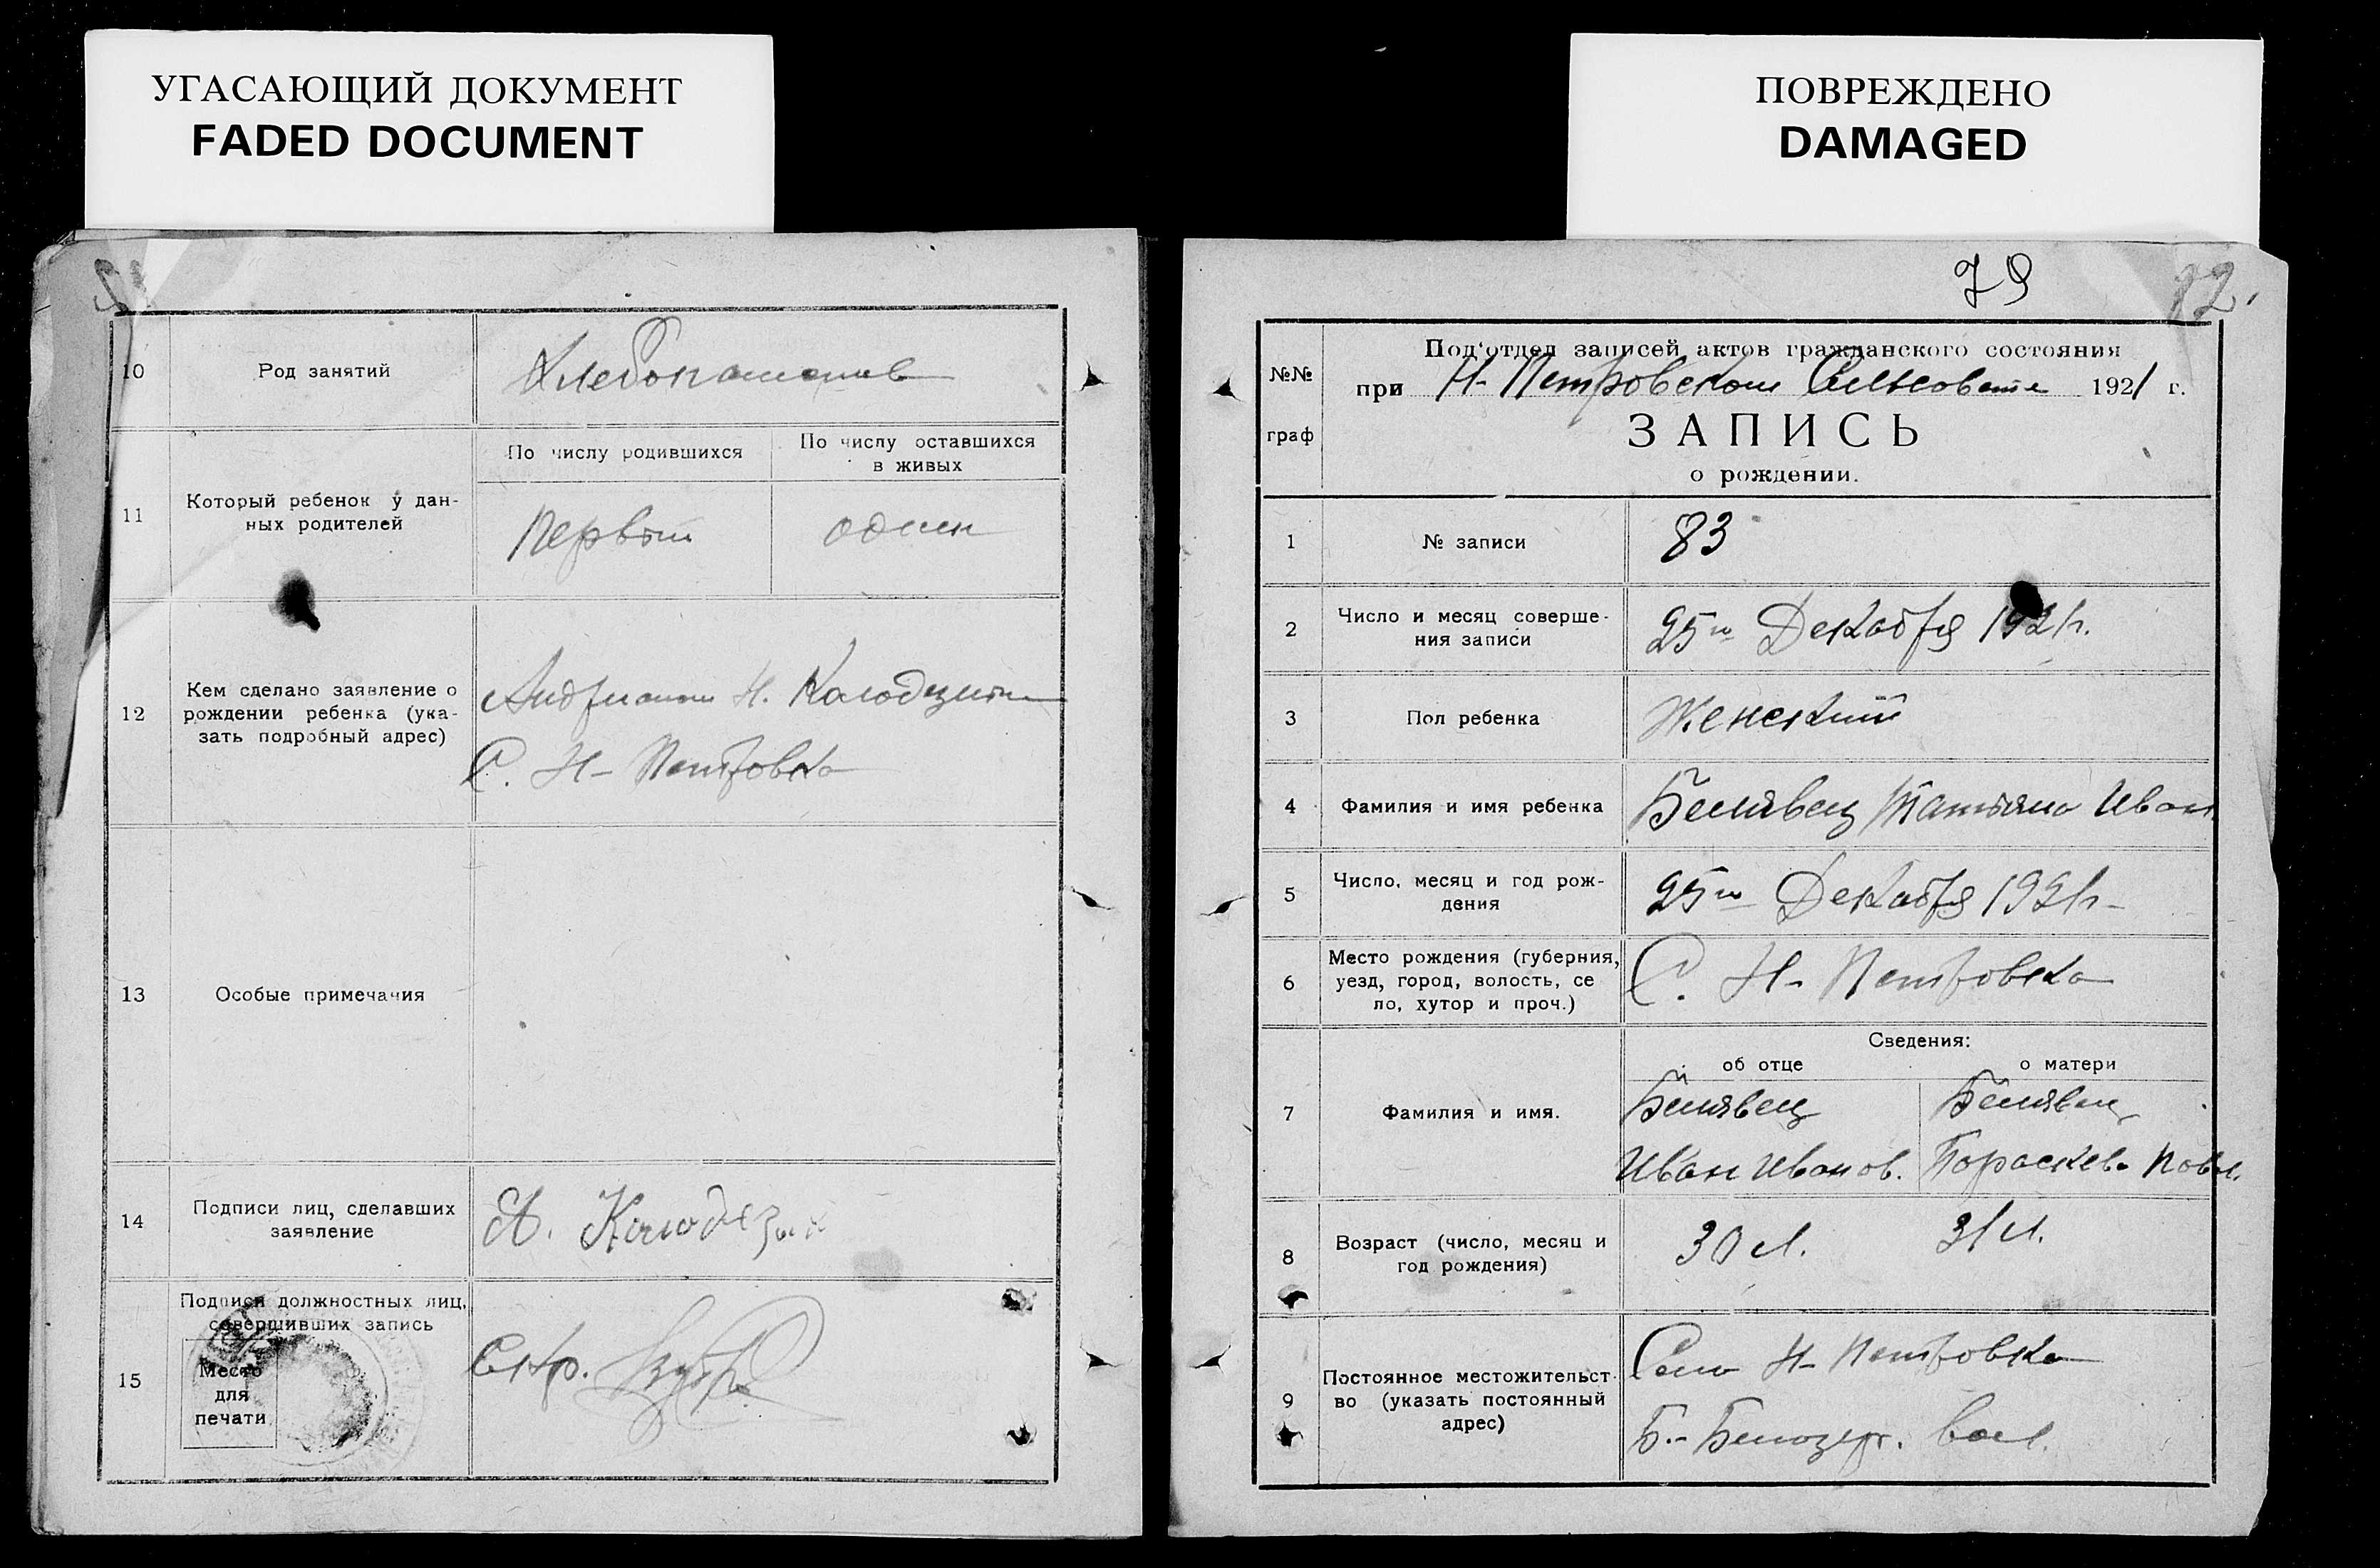 УГАСАЮЩИЙ ДОКУМЕНТ
FADED DOCUMENT
10
Род занятий
Хлебопашество
11
Который ребенок у дан-
ных родителей
По числу родившихся
По числу оставшихся
в живых
Первый
один
12
Кем сделано заявление о
рождении ребенка (ука-
зать подробный адрес)
Андрианом Н. Колодезным
С. Н- Петровка
13
Особые примечания
14
Подписи лиц, сделавших
заявление
А. Колодезный
15
Подписи должностных лиц,
совершивших запись
Место
для
печати
Секр.
ПОВРЕЖДЕНО
DAMAGED
79
82.
№№
граф
Под'отдел записей актов гражданского состояния
при Н- Петровском Сельсовете 1921 г.
ЗАПИСЬ
о рождении.
1
№ записи
83
2
Число и месяц соверше-
ния записи
25го Декабря 1921г.
3
Пол ребенка
Женский
4
Фамилия и имя ребенка
Белявец Татьяна Иван.
5
Число, месяц и год рож-
дения
25го Декабря 1921г-
6
Место рождения (губерния,
уезд, город, волость, се
ло, хутор и проч.)
С. Н- Петровка
7
Фамилия и имя.
Сведения:
об отце
о матери
Белявец
Иван Иванов.
Белявец
Параскева Павл.
8
Возраст (число, месяц и
год рождения)
30 л.
31 л.
9
Постоянное местожительст-
во (указать постоянный
адрес)
Село Н- Петровка
Б.- Белозер. вол.